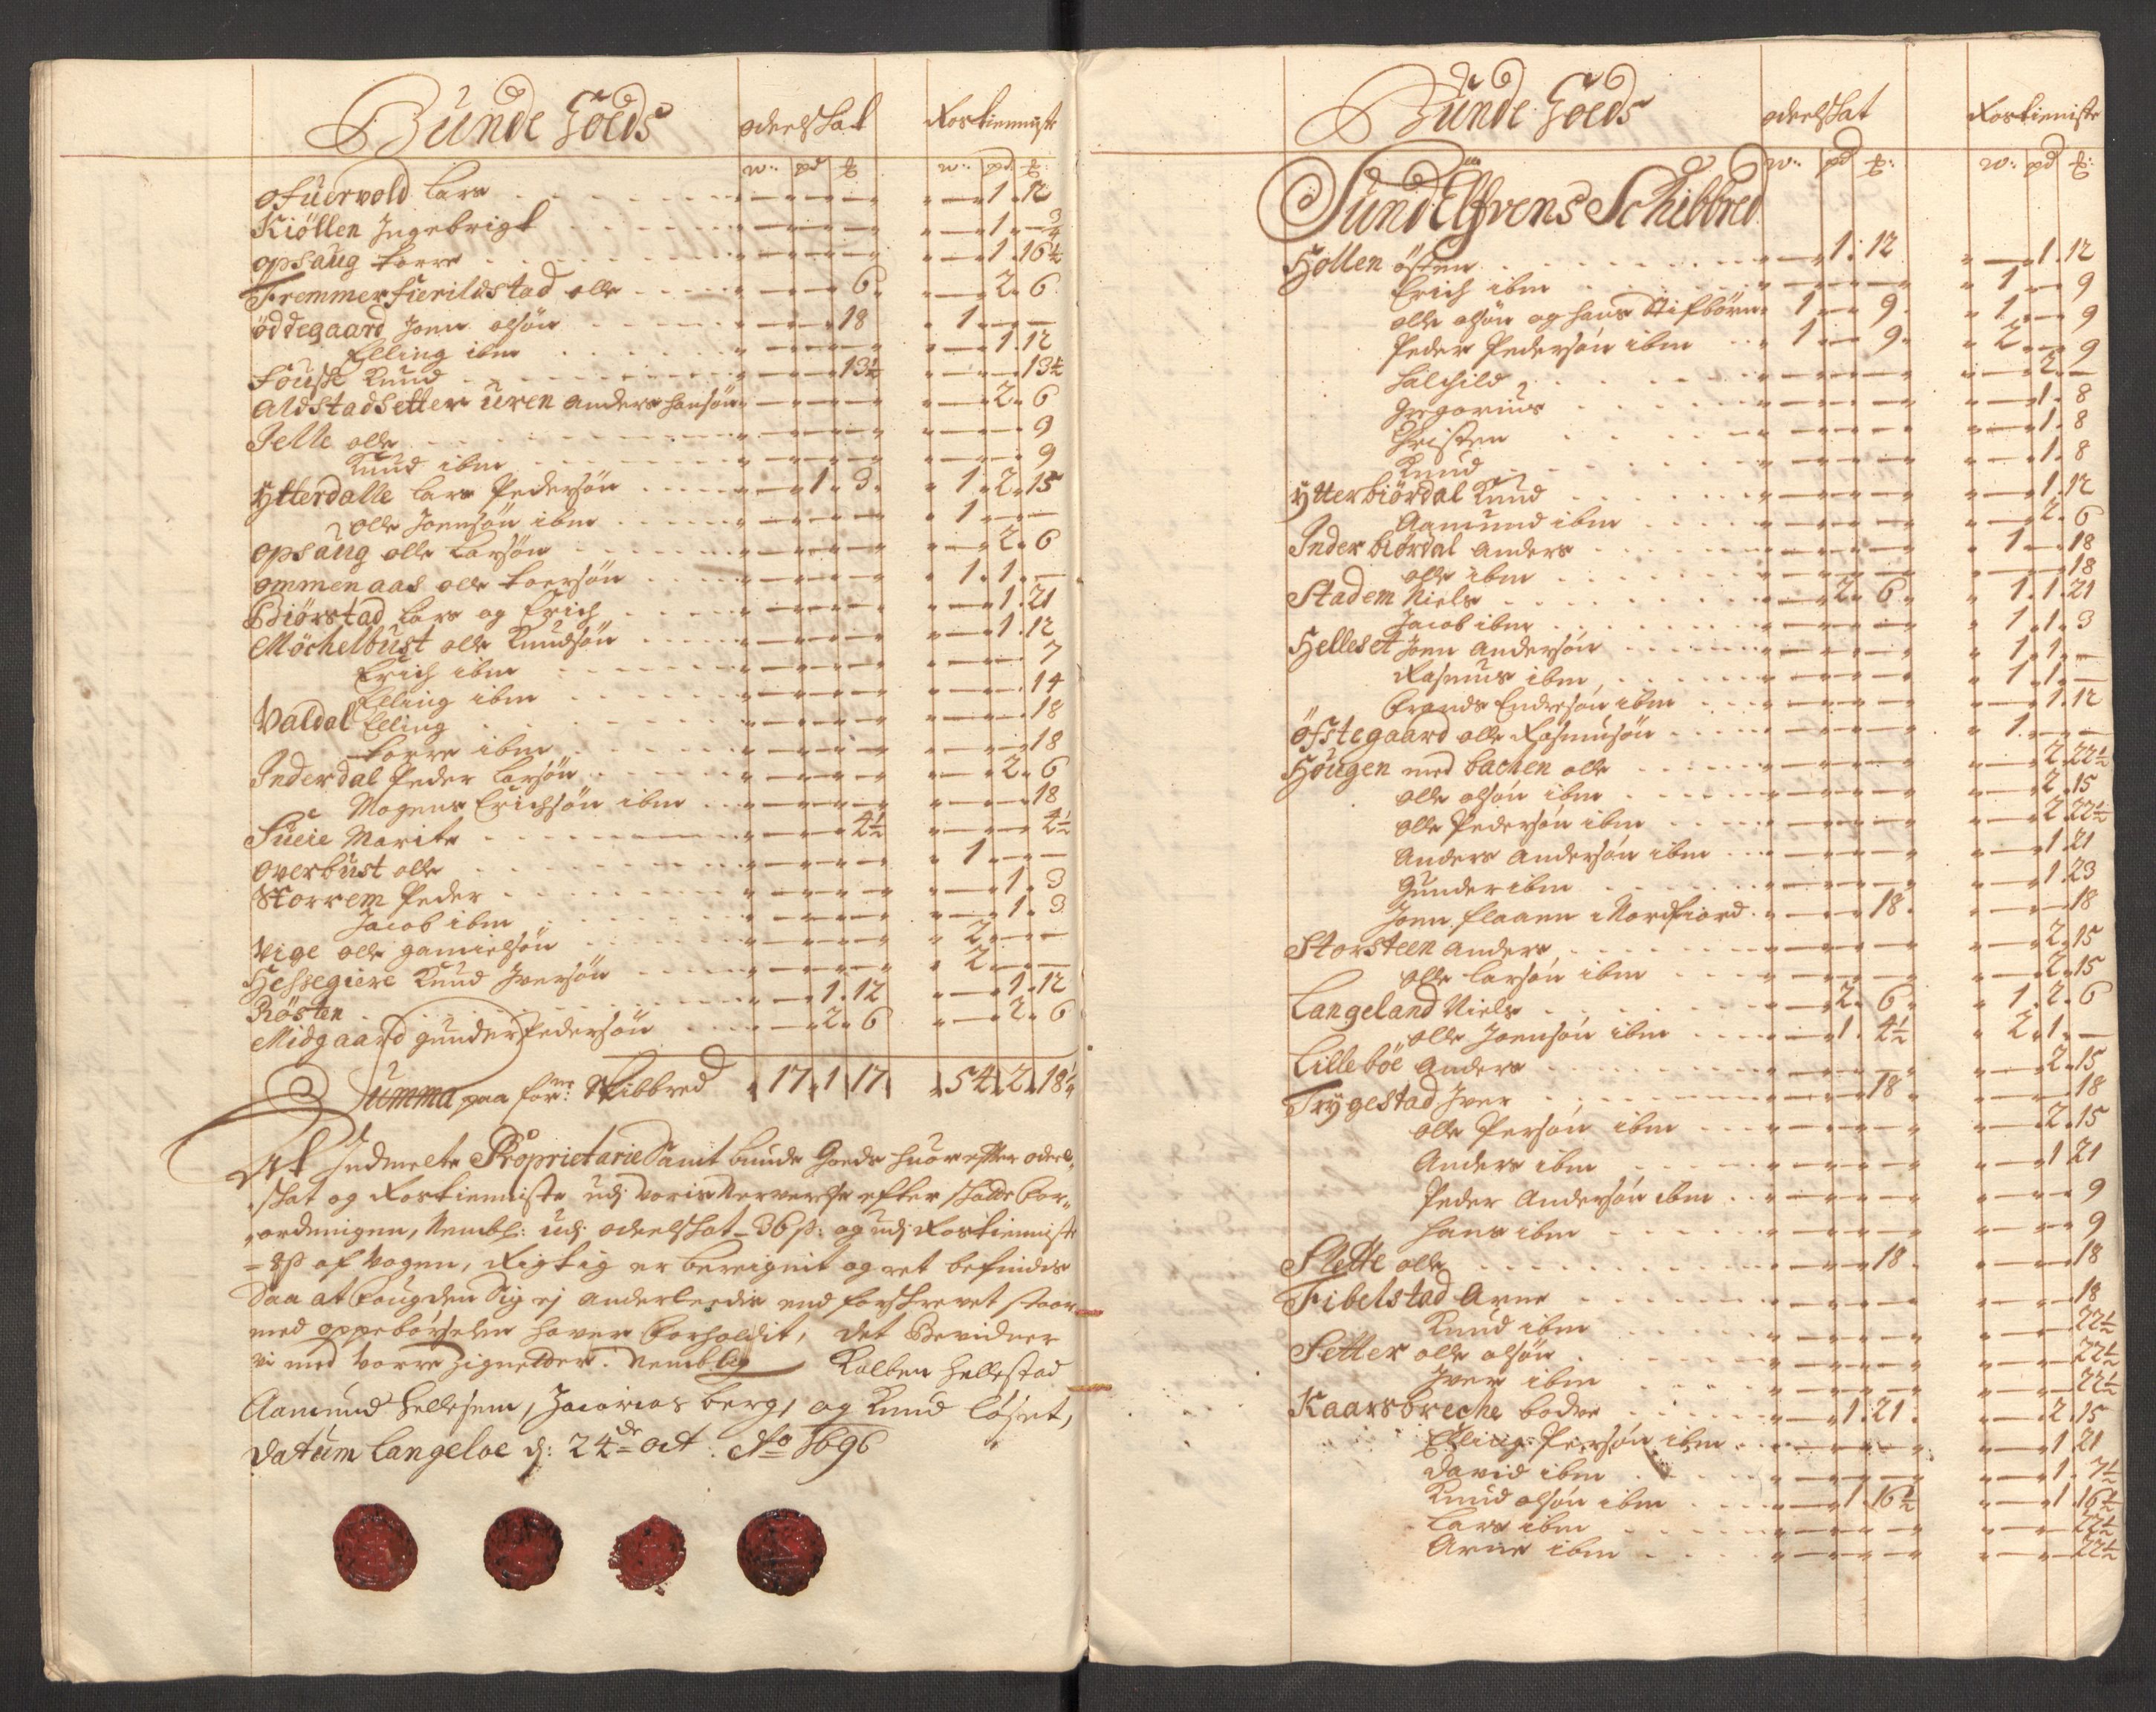 Bunde Goeds odelskat Rostienniste
w: pd ℔ w: pd ℔:
Ofuervold Lars 1. 12
Kiöllen Ingebrigt 1 — 3/4
opsaug Torre 1. 16 1/2
Fremmerfierildstad olle 6. 2. 6
öddegaard Joen olsön 18 1 — —
Elling ibm 1. 12
Foush Knud 13 1/2 13 1/2
Aldstadsetter uren anders hansön 2. 6
Jelle olle 9
Knud ibm 9
Ytterdalle Lars Pedersön 1. 3. 1. 2. 15
olle Joensön ibm 1 — —
opsaug olle Larsön 2. 6
ommenaas olle Toersön 1. 1. —
Biörstad Lars og Erich 1. 21
Möchelbust olle Knudsön 1. 12
Erich ibm 7
Elling ibm 14
Valdal Elling 18
Torre ibm 18
Inderdal Peder Larsön 2. 6
Mogens Erichsön ibm 18
Sueie Marite 4 1/2 4 1/2
overbust olle 1 — —
Storrem Peder 1. 3
Jacob ibm 1. 3
Vige olle gamielsön 2 — —
Hessegiere Knud Iversön 2 — —
Rösten 1. 12 1. 12
Midgaard gunder Pedersön 2. 6 2. 6
Summa paa forne: Skibbred 17. 1. 17. 54. 2. 18 1/4
At Indmelte Proprietarie Samt bunde Goeds huor efter odels
skat og Rostienniste udj voris Nerverelse efter skatte for
ordningen, Nembl: udj odelskat 36 ß: og udj Rostienniste
8 ß af vogen, Rigtig er bereignit og ret befindes
Saa at fougden Sig ej anderledis end forskrevet staar
med oppebörselen haver forholdit, det Bevidner
vi med vorre Zigneter. Nemblig Kolben Hellestad
Aamund Hellesem, Zacarias berg, og Knud Löset,
Datum Langeloe d: 24de oct: Ao 1696
Bunde Goeds odelskat Rostieniste
w: pd ℔: w: pd ℔:
SundElfvens Schibbred
Hollen östen 1. 12 1. 12
Erich ibm 1 — 9
olle olsön og hans Stifbörn 1 — 9. 1 — 9
Peder Pedersön ibm 1 — 9. 2 — 9
Halchild 2. —
Gregorius 1. 8
Christen 1. 8
Knud 1. 8
Ytterbiördal Knud 1. 12
Aamund ibm 2. 6
Inder biördal anders 1 — 18
olle ibm 18
Stadem Niels 2. 6. 1. 1. 21
Jacob ibm 1. 1. 3
Helleset Joen andersön 1. 1. —
Rasmus ibm 1. 1. —
Frands Endresön ibm 1. 12
öfstegaard olle Rasmusön 1 — —
Höugen med bachen olle 2. 22 1/2
olle olsön ibm 2. 15
olle Pedersön ibm 2. 22 1/2
Anders andersön ibm 1. 21
Gunder ibm 1. 23
Joen Flaaen i Nordfiord 18. 18
Storsteen anders 2. 15
olle Larsön ibm 2. 15
Langeland Niels 2. 6. 1. 2. 6
olle Joensön ibm 1. 4 1/2 2. 1. —
Lilleböe anders 2. 15
Trygestad Iver 18. 18
olle Persön ibm 2. 15
Anders ibm 1. 21
Peder Andersön ibm 9
Hans ibm 9
Slette olle 18. 18
Fibelstad Arne 18
Knud ibm 22 1/2
Setter olle olsön 22 1/2
Iver ibm 22 1/2
Kaarsbreche bodve 1. 21. 2. 15
Elling Persön ibm 1. 21
David ibm 1. 7 1/2
Knud olsön ibm 1. 16 1/2 1. 16 1/2
Lars ibm 22 1/2
Arne ibm 22 1/2